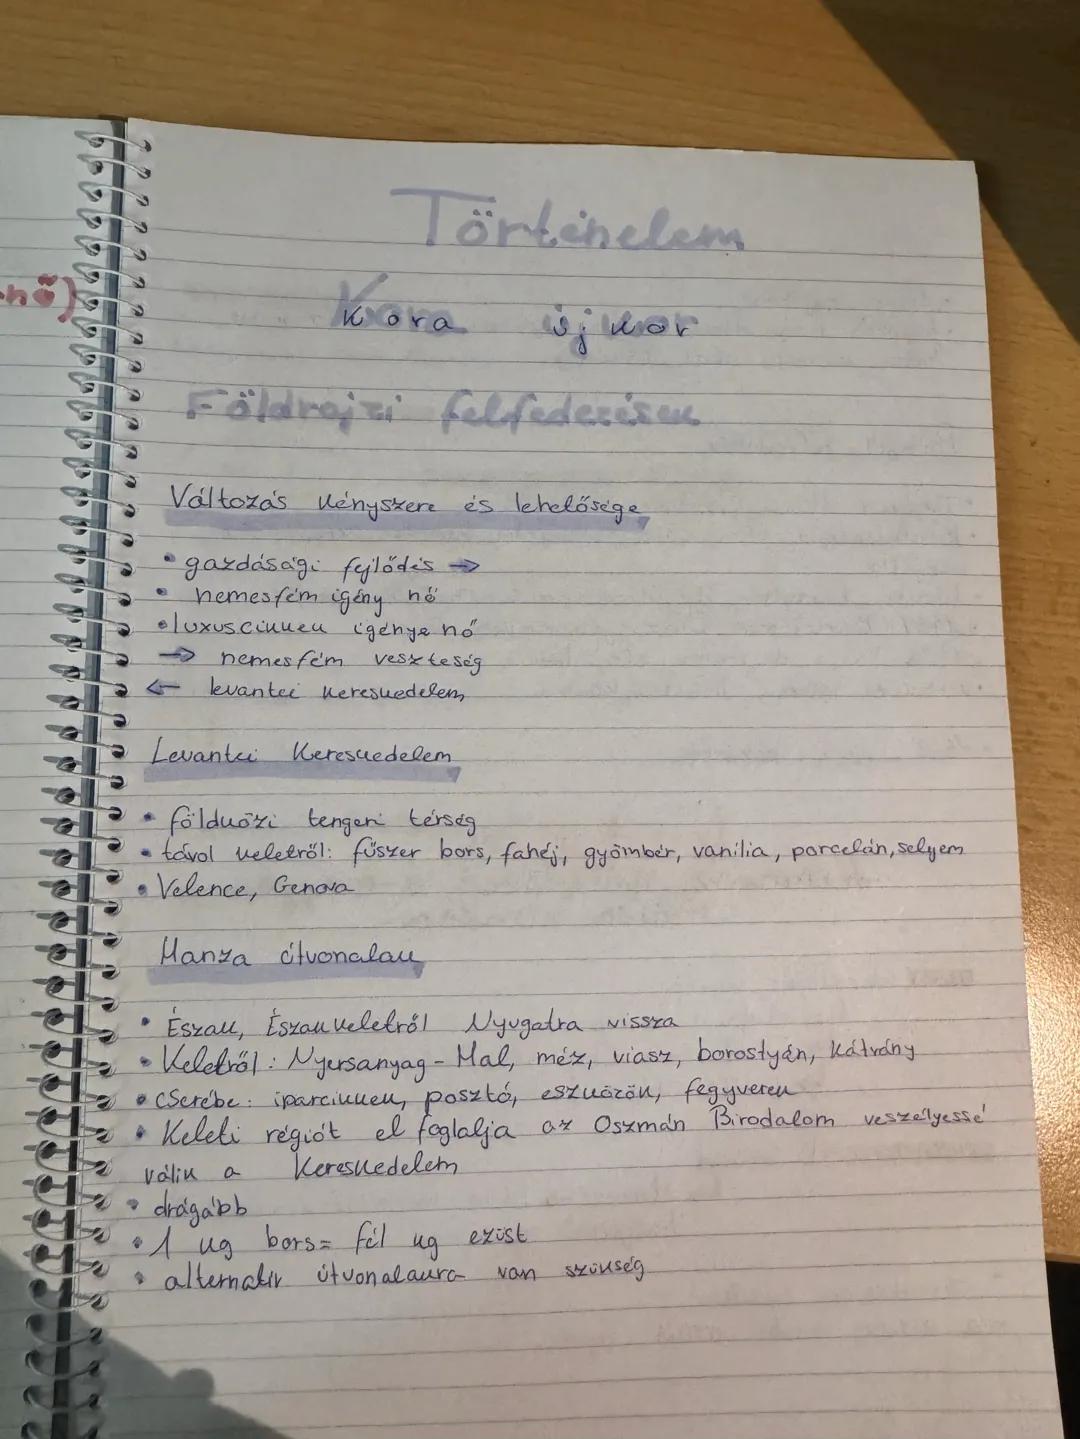 nő)
Történelem
Kora újkor
Földrajzi felfedezések
Változás kényszere és lehetősége
• gazdasági fejlődés →
• nemesfém igény nő
• luxuscikkek igénye nő
→ nemesfém veszteség
← levantei kereskedelem
Levantei Kereskedelem
• földközi tengeri térség
• távol keletről: fűszer bors, fahéj, gyömbér, vanília, porcelán, selyem
• Velence, Genova
Hanza útvonalak
• Észak, Északkeletről Nyugatra vissza
• Keletről: Nyersanyag - Hal, méz, viasz, borostyán, kátrány
• cserébe: iparcikkek, posztó, eszközök, fegyverek
• Keleti régiót el foglalja az Oszmán Birodalom veszélyessé
válik a Kereskedelem
• drágább
• 1 kg bors = fél kg ezüst
• alternatív útvonalakra van szükség